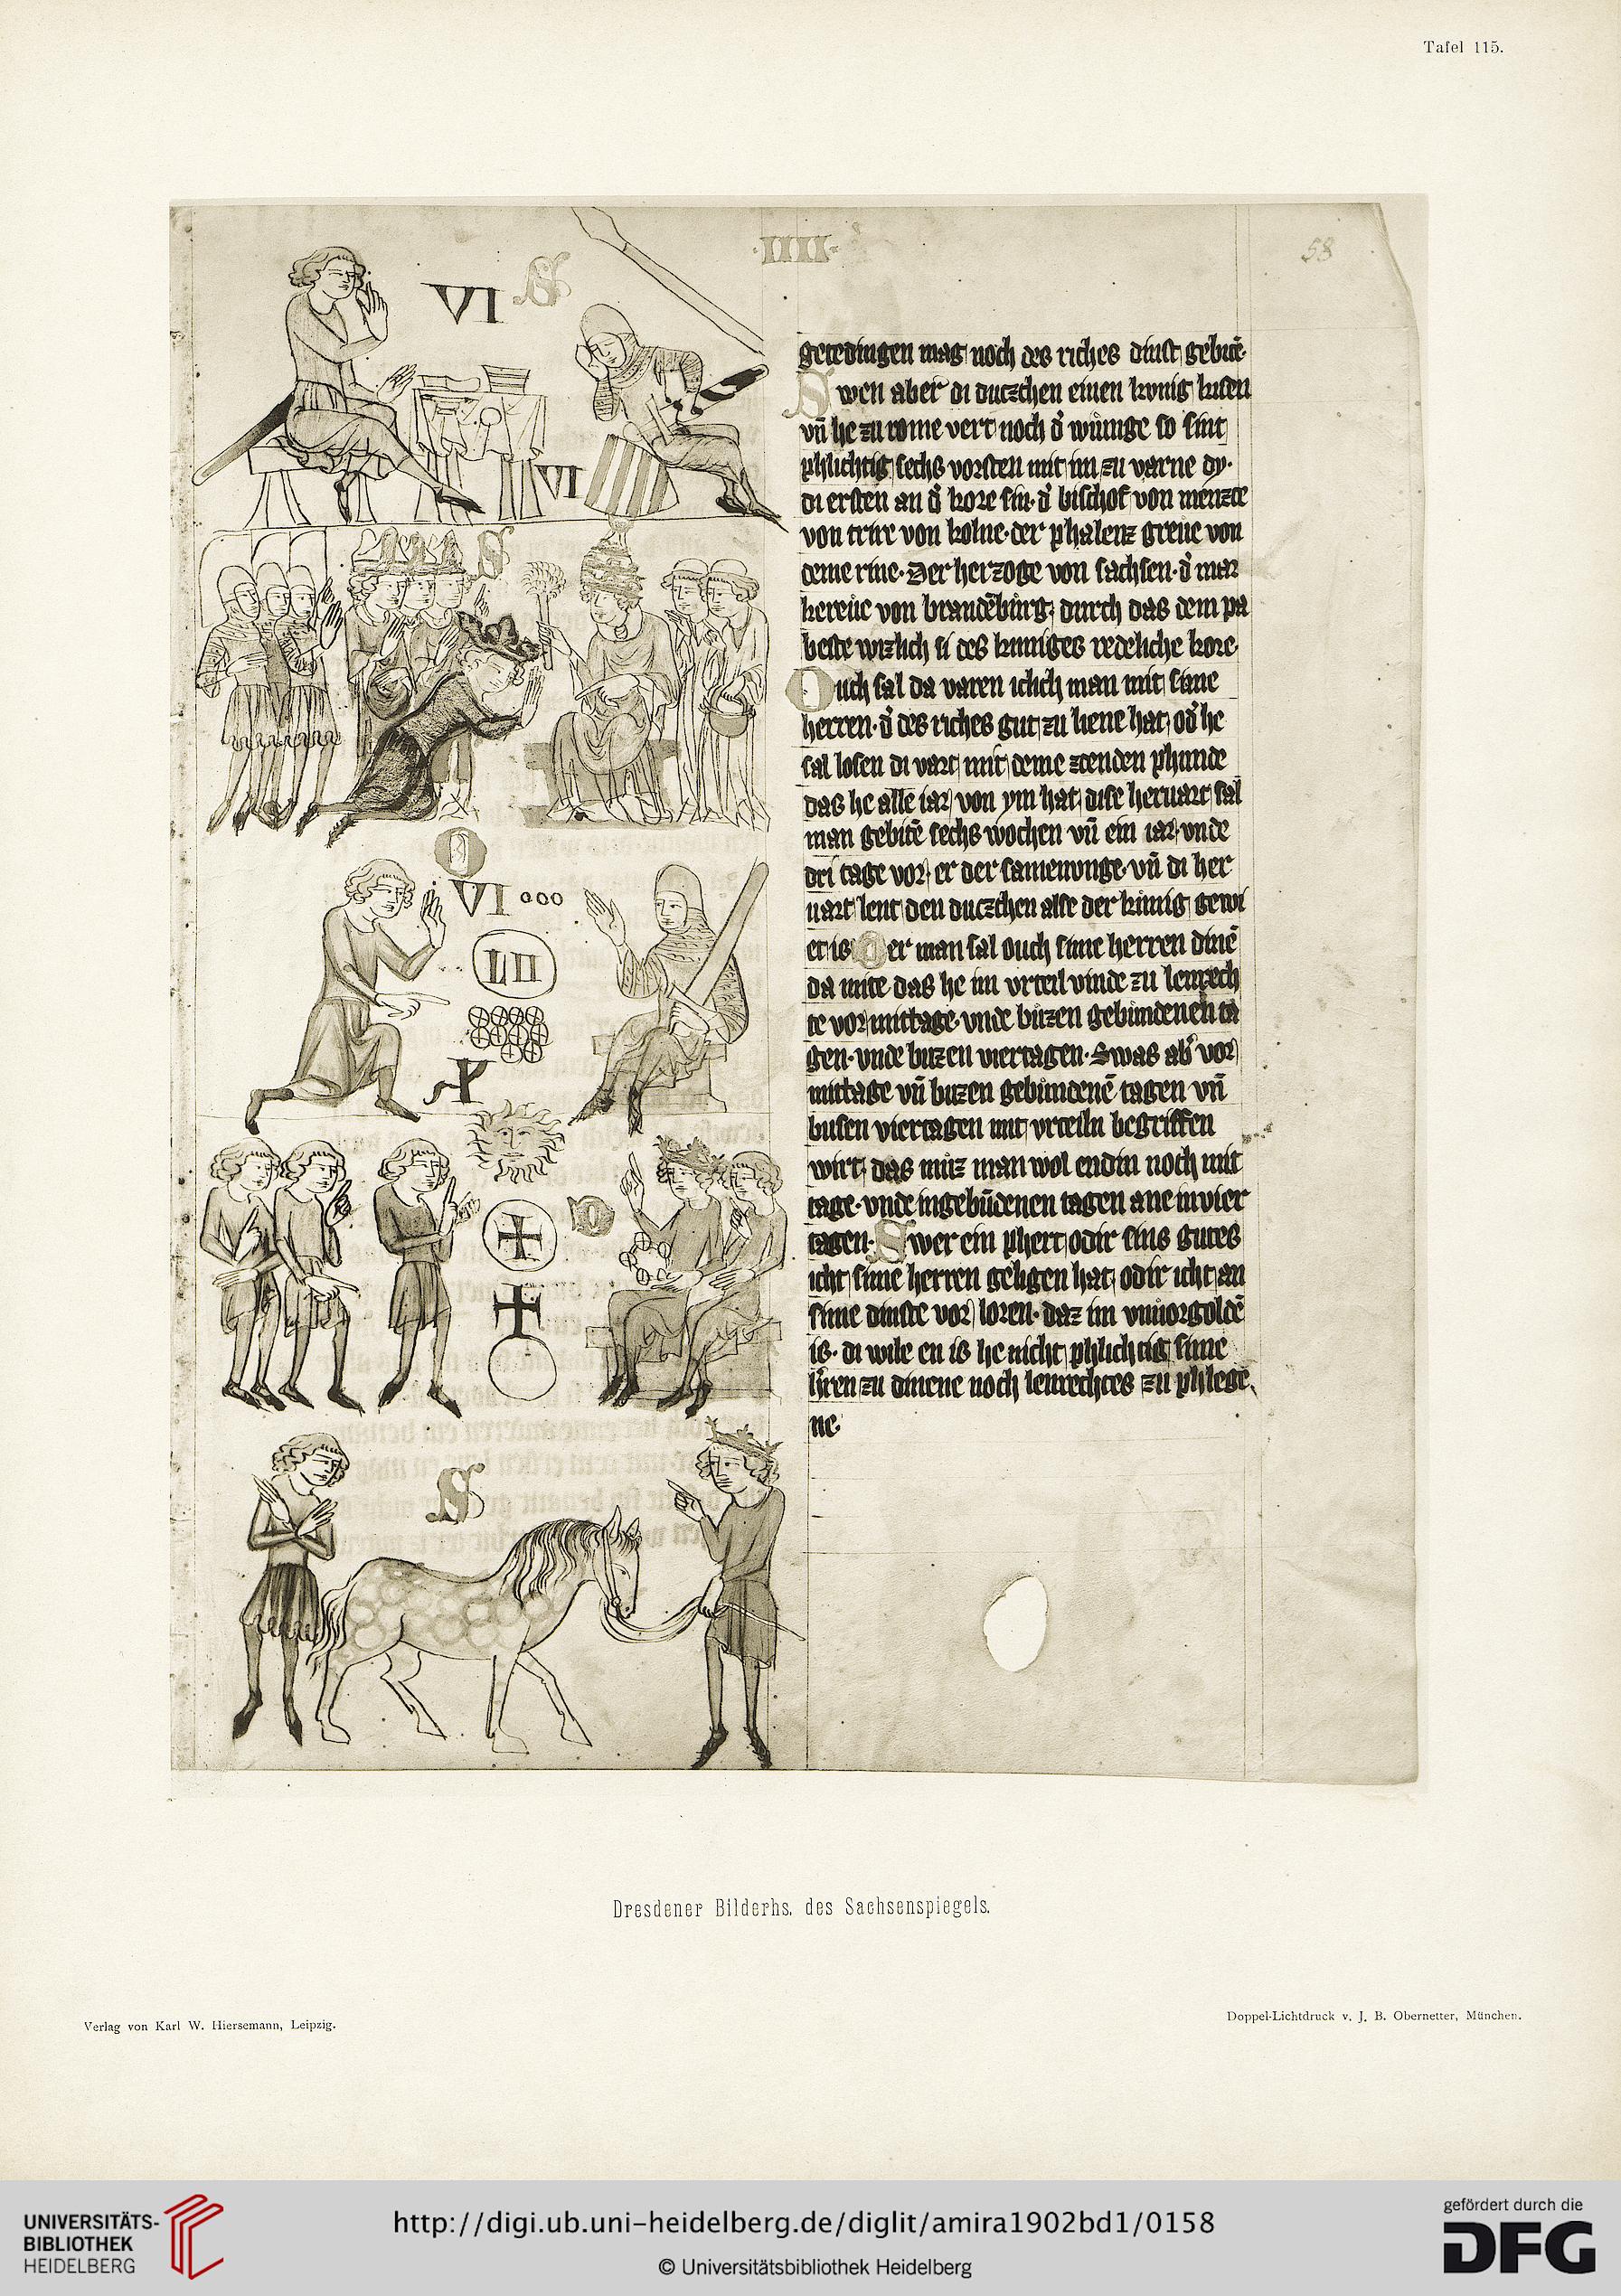 Tafel 115.
·IIII·
58
VI S
VI
S
O
VI ooo
LII
D
S
getedingen mag noch des riches dinst gebitē·
Swen aber di dutzschen einen konig kisen
vn̄ he zu rome vert noch d' wiunge so sint
phlichtig sechs vorsten mit im zu varne dy·
di ersten an d' kore sin· d' bischof von mencze
von trire von kolne· der phalenz greue von
deme rine· Der herzoge von sachsen· d' mar
kereue von brandēburg· durch das dem pa
beste wizlich si des kuniges redeliche kore·
Ouch sal da varen iclich man mit sime
herren· d' des riches gut zu liene hat, od' he
sal losen di vart mit deme zcenden phunde
das he alle iar von ym hat dise heruart sal
man gebitē sechs wochen vn̄ ein iar vnde
dri tage vor er der samenunge· vn̄ di her
uart lent den dutzschen alse der kunig gewi
et is· Der man sal ouch sime herren dinē
da mite das he im vrteil vinde zu lenrech
te vor mittage· vnde buzen gebundenen ta
gen· vnde buzen viertagen· Swas ab' vor
mittage vn̄ buzen gebundenē tagen vn̄
busen viertagen mit vrteiln begriffen
wirt, das muz man wol endin noch mit
tage· vnde ingebūdenen tagen ane in vier
tagen· Swer ein phert odir sins gutes
icht sime herren geligen hat odir icht an
sime dinste vor loren· daz im vnuorgoldē
is· di wile en is he nicht phlichtig sime
h'ren zu dinene noch lenrechtes zu phlege
ne·
Dresdener Bilderhs. des Sachsenspiegels.
Verlag von Karl W. Hiersemann, Leipzig.
Doppel-Lichtdruck v. J. B. Obernetter, München.
UNIVERSITÄTS-
BIBLIOTHEK
HEIDELBERG
http://digi.ub.uni-heidelberg.de/diglit/amira1902bd1/0158
© Universitätsbibliothek Heidelberg
gefördert durch die
DFG